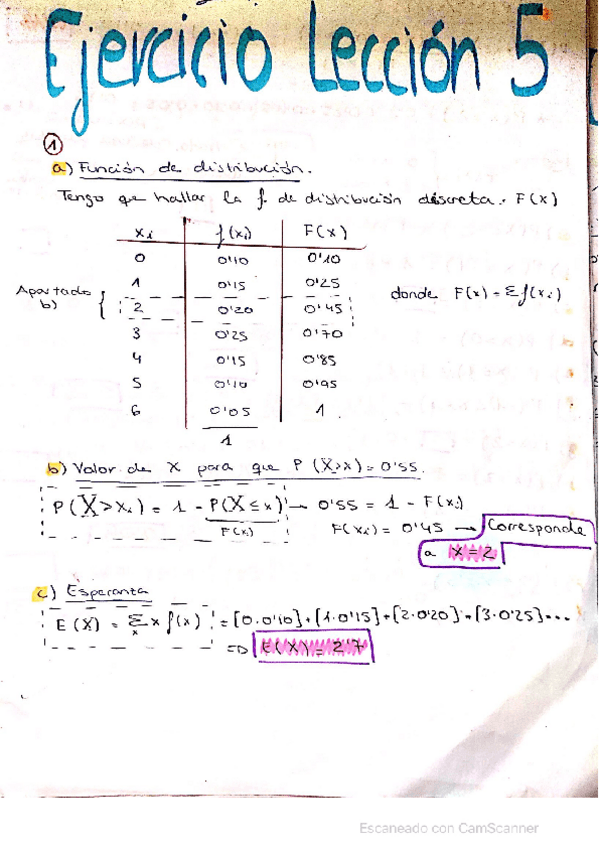 Ejercicio Lección 5
①
a) Función de distribución.
Tengo que hallar la f. de distribución discreta. F(x)
xi f(xi) F(x)
0 0'10 0'10
1 0'15 0'25
Apartado b) { 2 0'20 0'45
donde F(x) = Σf(xi)
3 0'25 0'70
4 0'15 0'85
5 0'10 0'95
6 0'05 1
1
b) Valor de X para que P(X>x) = 0'55.
P(X>xi) = 1 - P(X≤x) → 0'55 = 1 - F(xi)
F(xi)
F(xi) = 0'45 → Corresponde
a x=2
c) Esperanza
E(X) = Σx x f(x) = [0·0'10]+[1·0'15]+[2·0'20]+[3·0'25]...
=D E(X) = 2'7
Escaneado con CamScanner